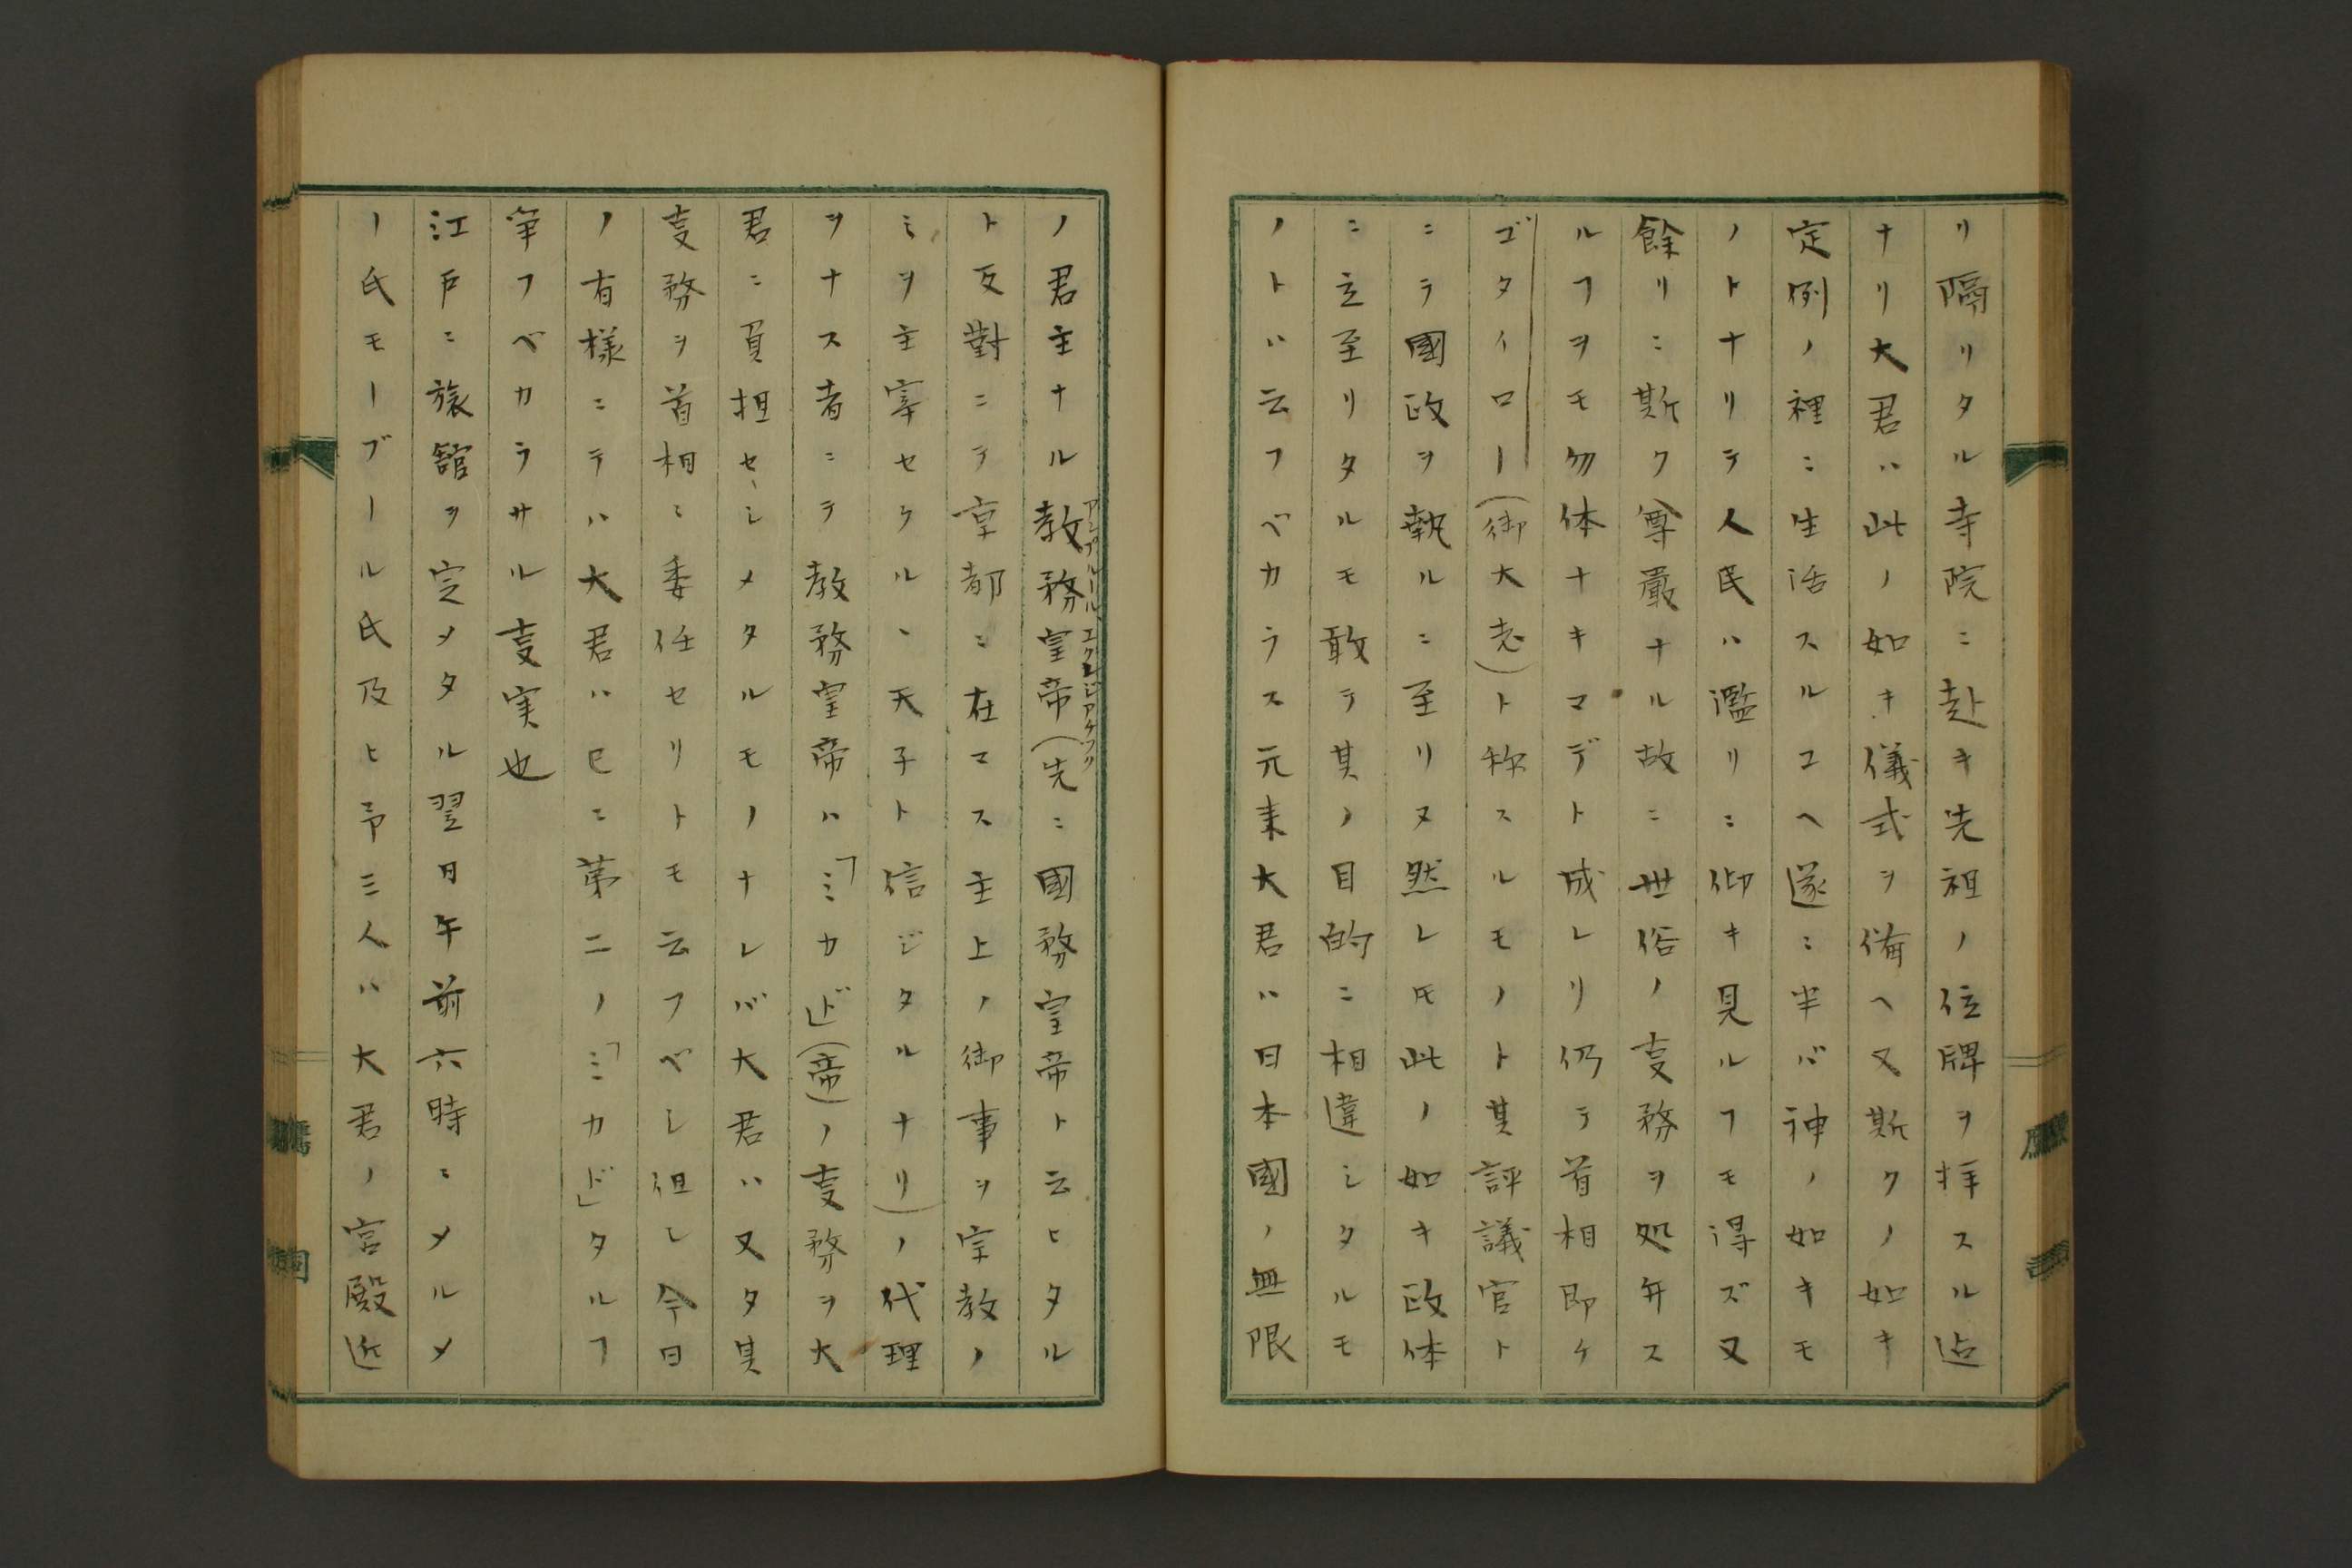 リ隔リタル寺院ニ赴キ先祖ノ位牌ヲ拝スル迠
ナリ大君ハ此ノ如キ儀式ヲ備ヘ又斯クノ如キ
定例ノ裡ニ生活スルユヘ遂ニ半バ神ノ如キモ
ノトナリテ人民ハ濫リニ仰キ見ルヿモ得ズ又
餘リニ斯ク尊嚴ナル故ニ世俗ノ叓務ヲ処弁ス
ルヿヲモ勿体ナキマデト成レリ仍テ首相即ケ
ゴタイロー(御大老)ト称スルモノト其評議官ト
ニテ國政ヲ執ルニ至リヌ然レ𪜈此ノ如キ政体
ニ立至リタルモ敢テ其ノ目的ニ相違シタルモ
ノトハ云フベカラス元来大君ハ日本國ノ無限
ノ君主ナル教務皇帝(先ニ國務皇帝ト云ヒタル
アンプルール、エクレジアケフリ
ト反對ニテ京都ニ在マス主上ノ御事ヲ宗教ノ
ミヲ主宰セクル、天子ト信ジタルナリ)ノ代理
ヲナス者ニテ教務皇帝ハ「ミカド」(帝)ノ叓務ヲ大
君ニ負担セシメタルモノナレバ大君ハ又タ其
叓務ヲ首相ニ委任セリトモ云フベシ但シ今日
ノ有様ニテハ大君ハ已ニ第二ノ「ミカド」タルヿ
争フベカラサル叓実也
江戸ニ旅館ヲ定メタル翌日午前六時ニメルメ
ー氏モーブール氏及ヒ予三人ハ大君ノ宮殿近